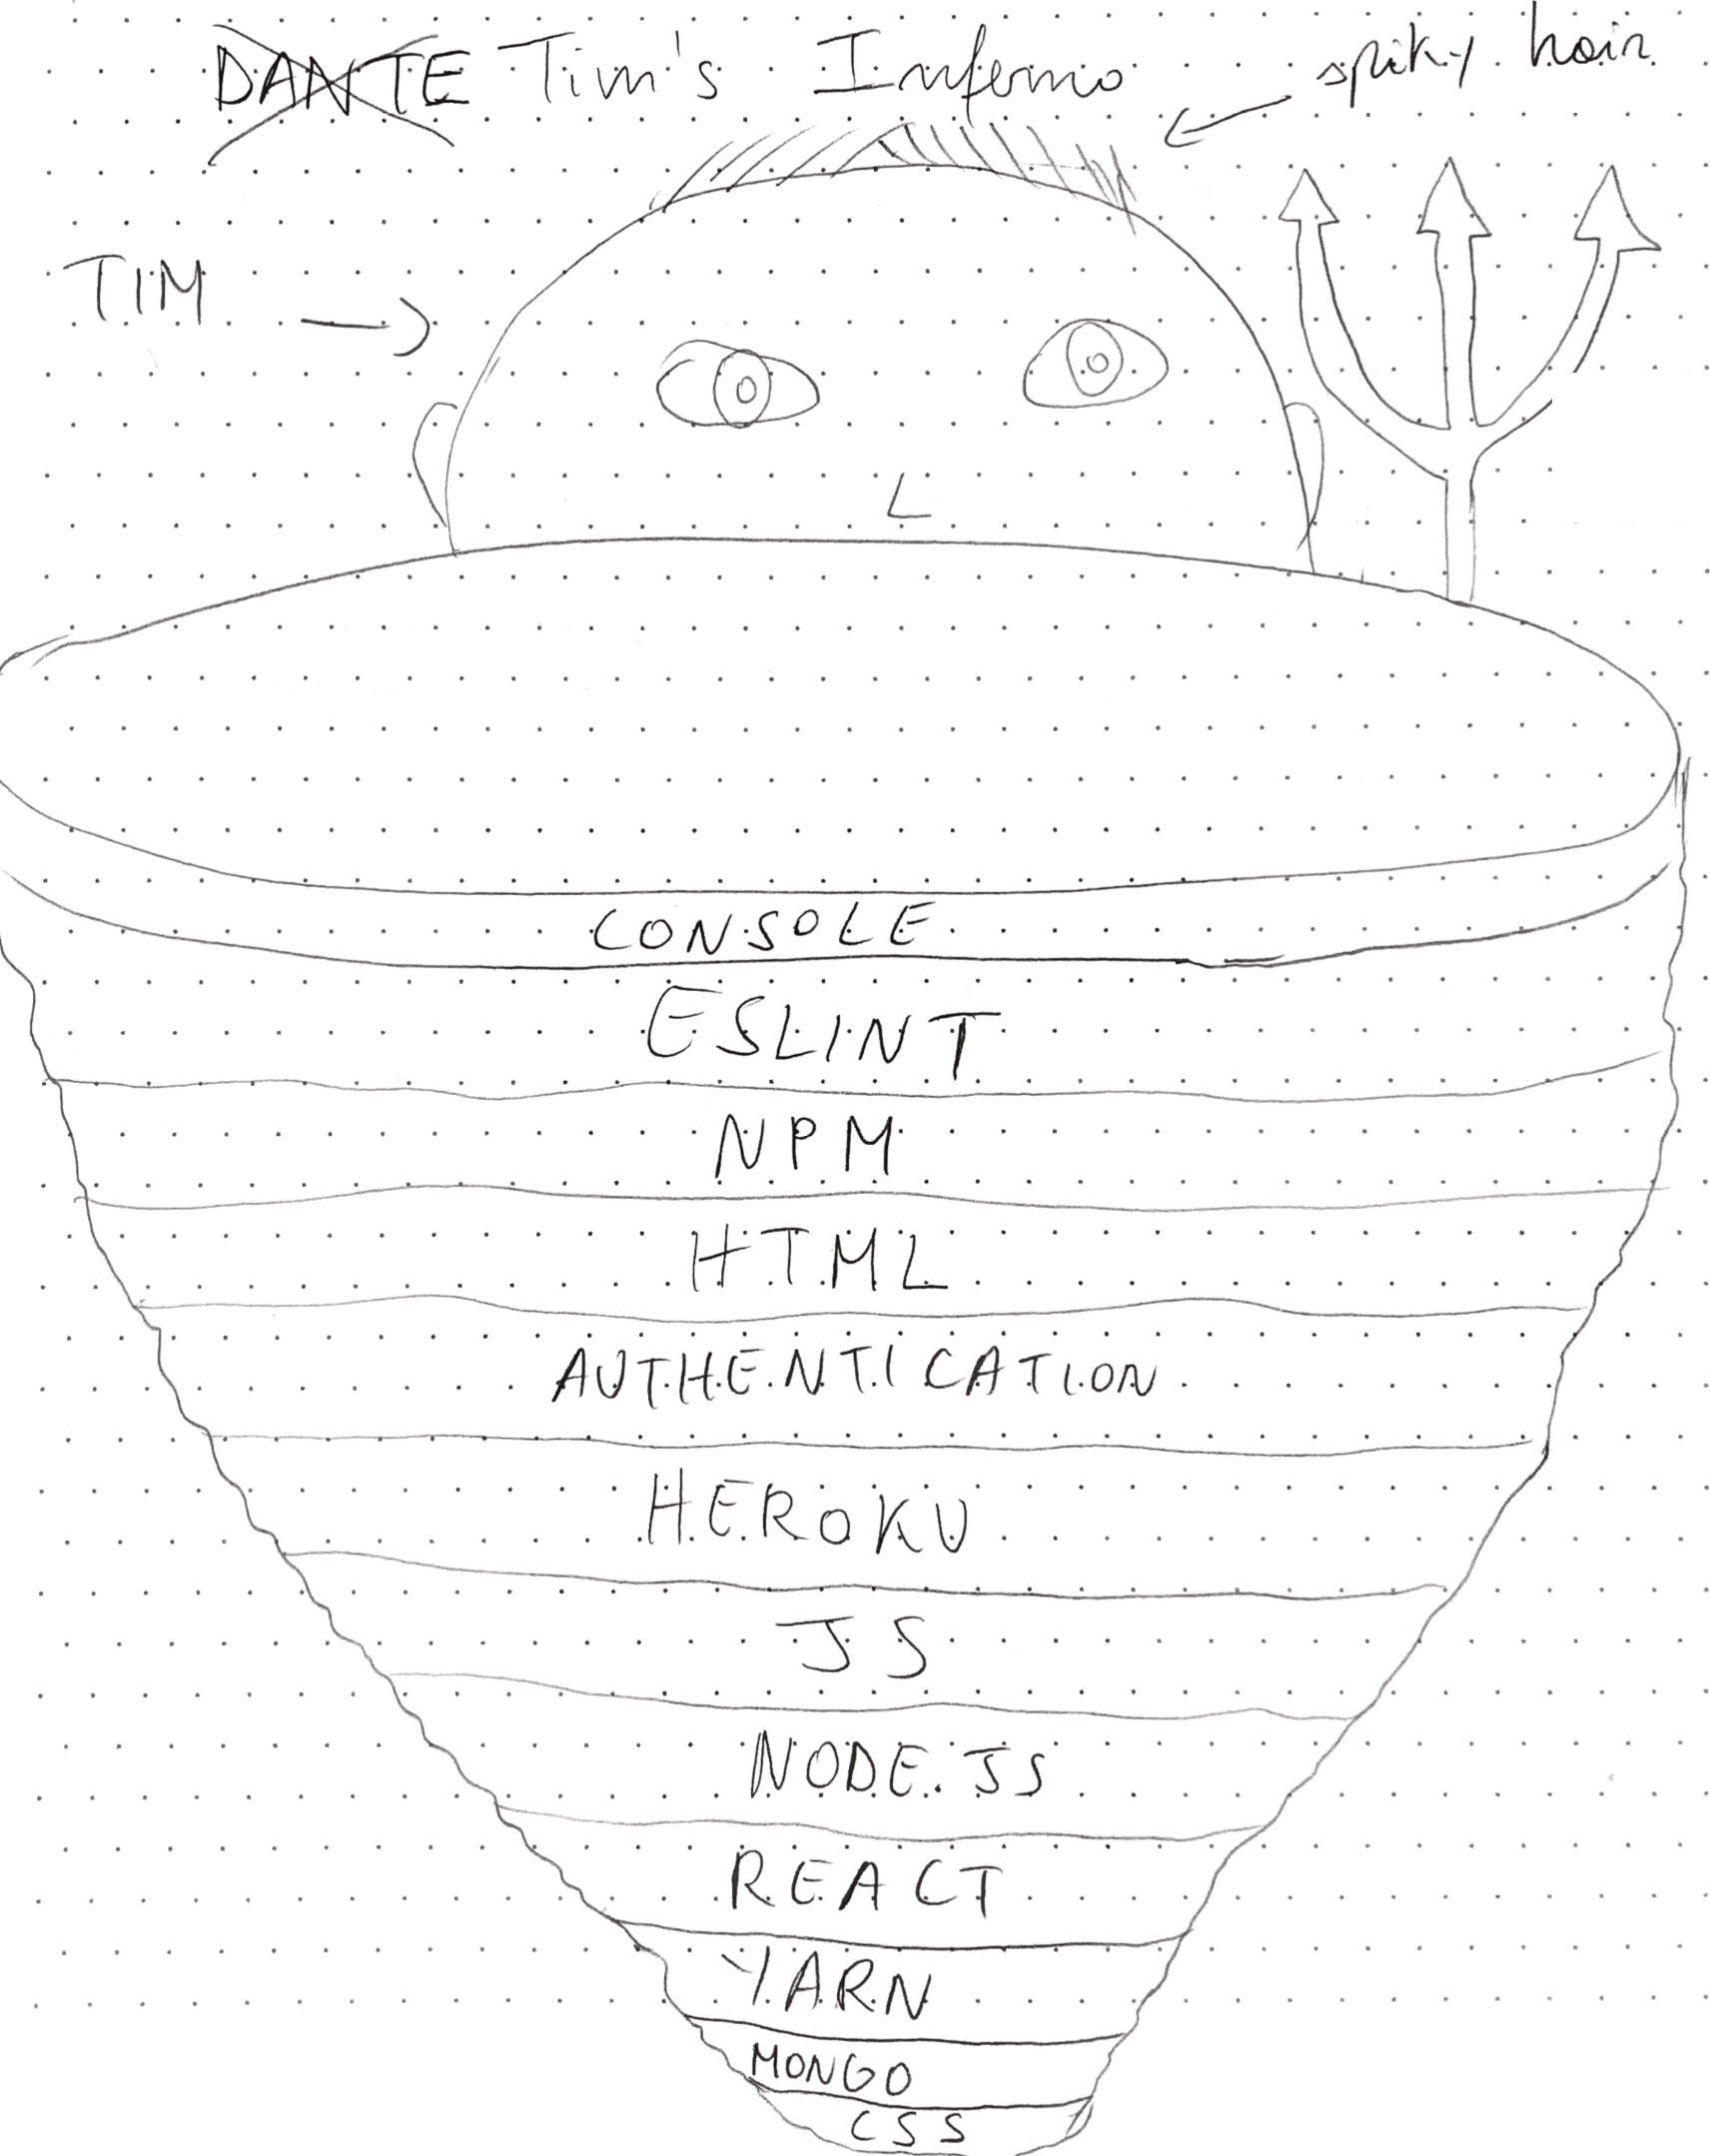 DANTE Tim's Inferno
spiky hair
TIM
CONSOLE
ESLINT
NPM
HTML
AUTHENTICATION
HEROKU
JS
NODE.JS
REACT
YARN
MONGO
CSS